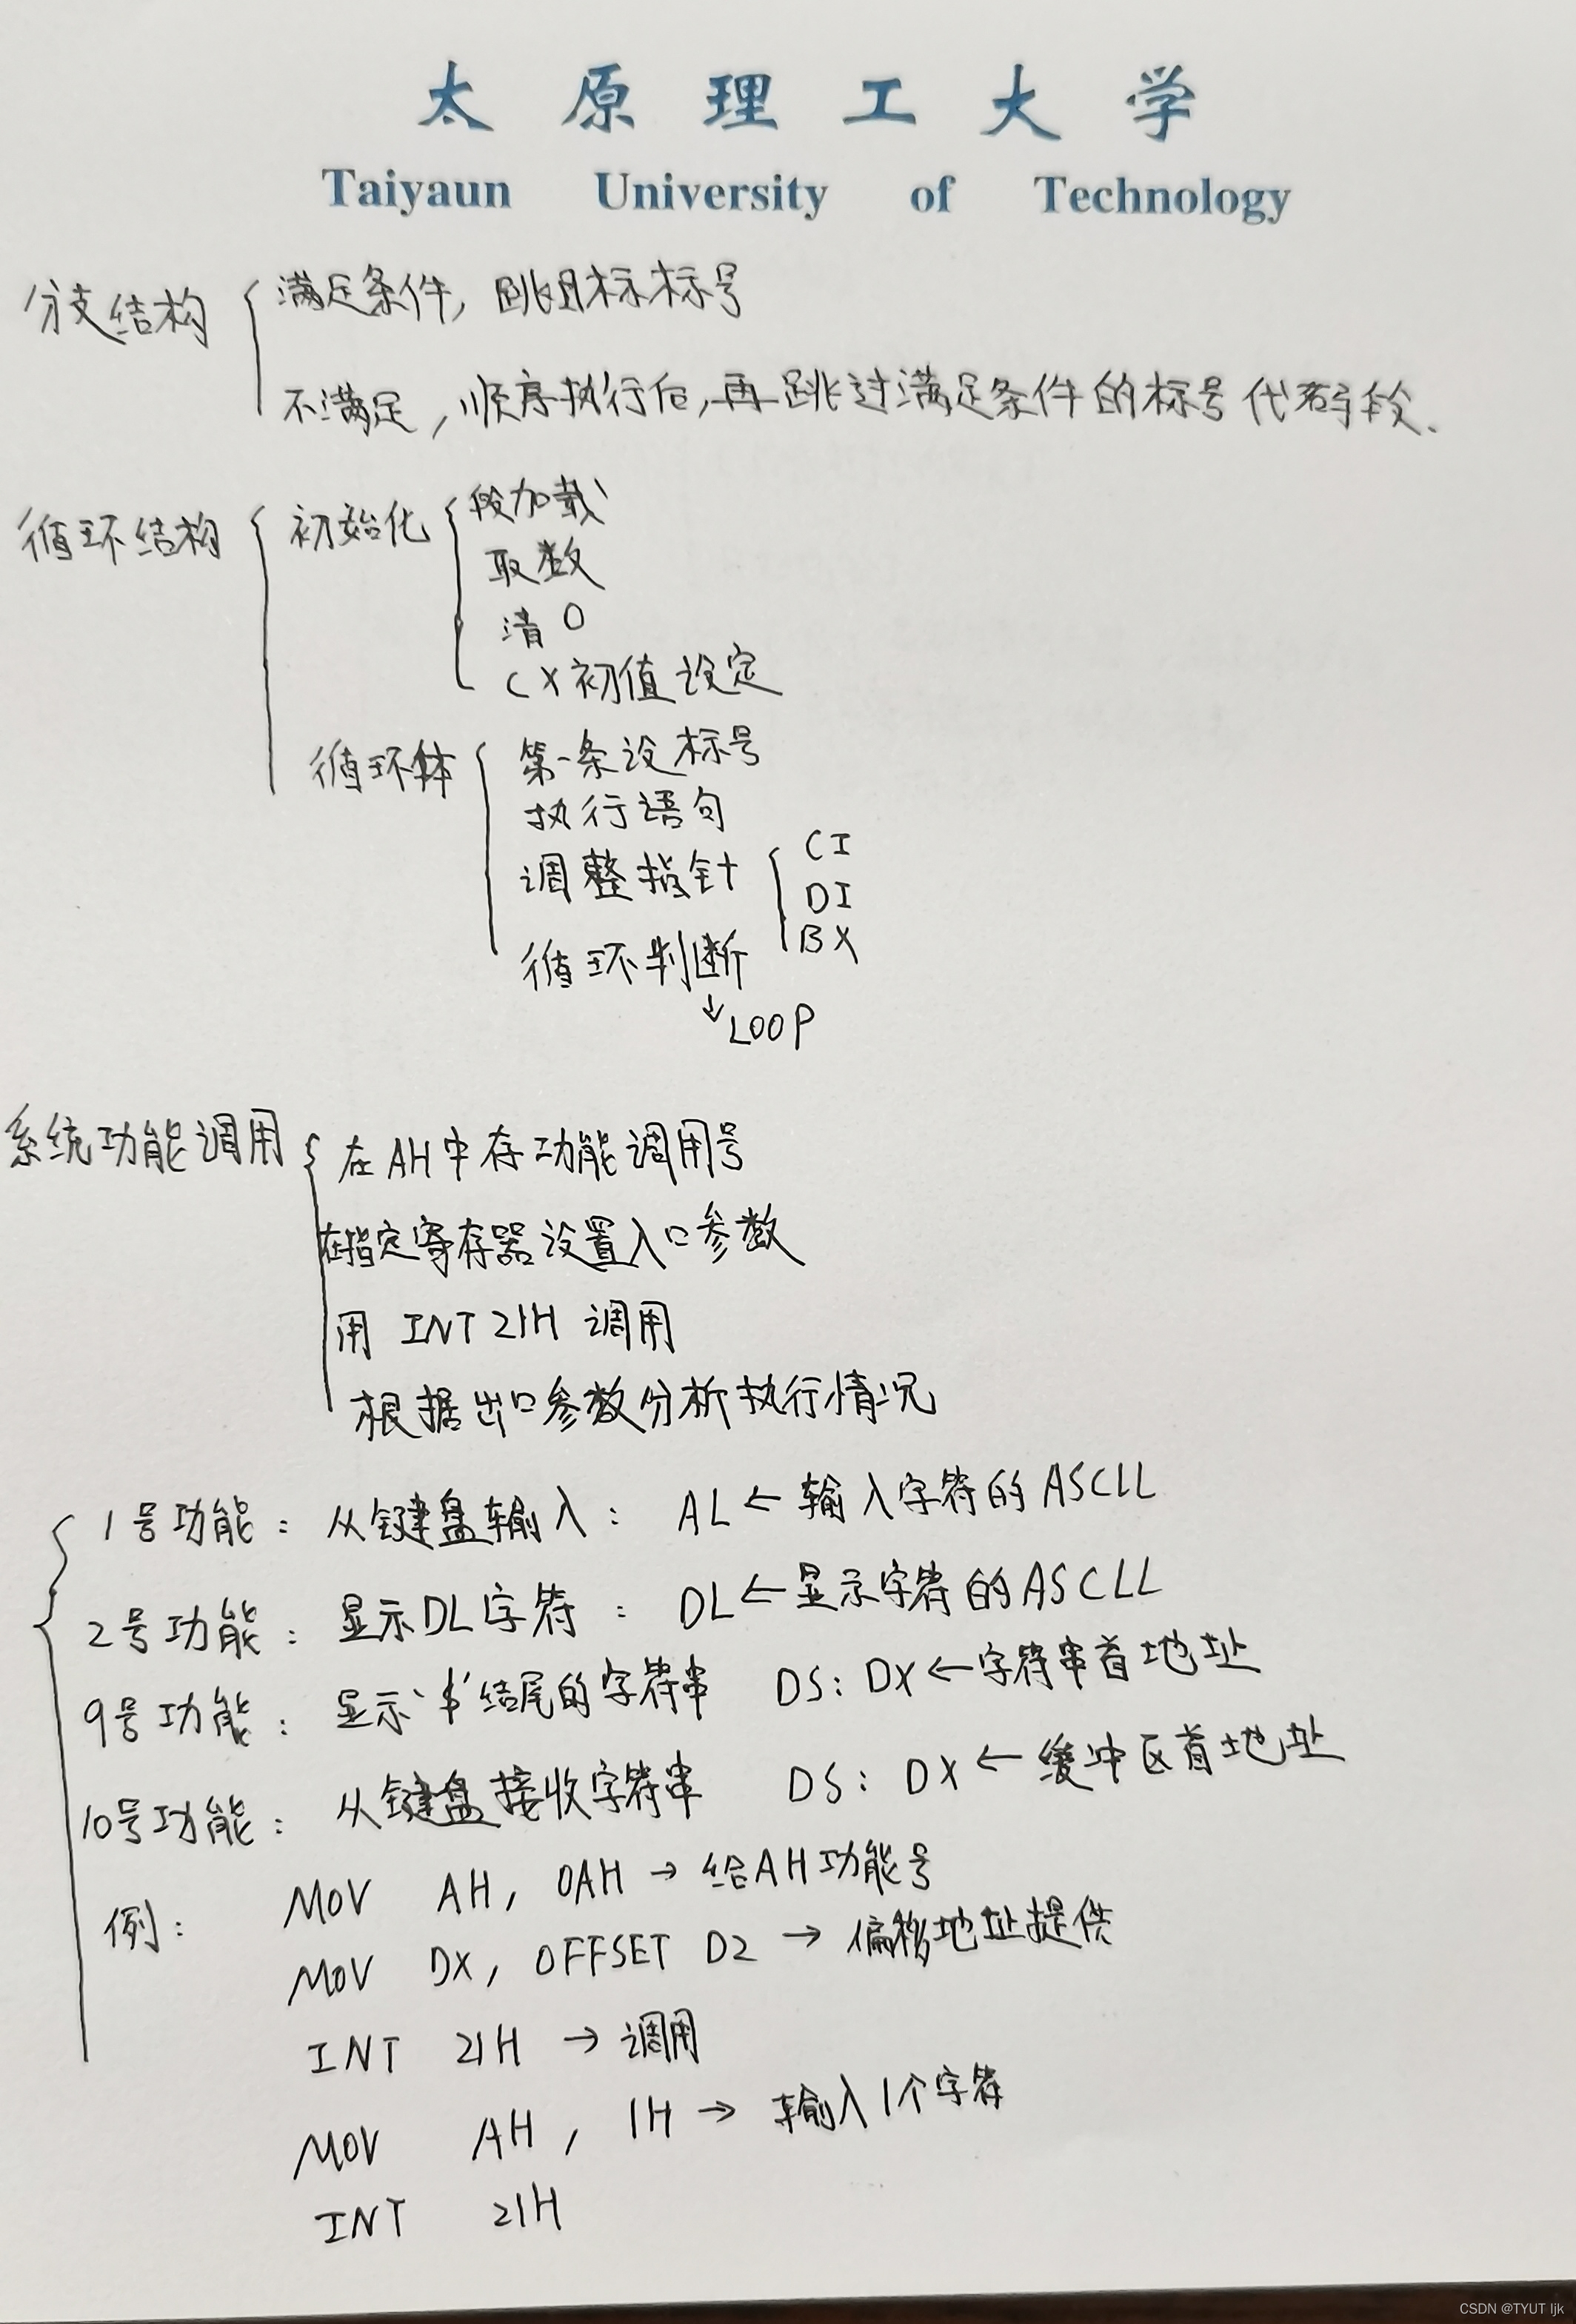 太原理工大学
Taiyaun University of Technology
分支结构 满足条件, 跳目标标号
不满足, 顺序执行后, 再跳过满足条件的标号代码段.
循环结构 初始化 段加载
取数
清0
CX初值设定
循环体 第一条设标号
执行语句
调整指针 CI
DI
BX
循环判断
↓ LOOP
系统功能调用 在AH中存功能调用号
在指定寄存器设置入口参数
用 INT 21H 调用
根据出口参数分析执行情况
1号功能: 从键盘输入: AL←输入字符的ASCLL
2号功能: 显示DL字符: DL←显示字符的ASCLL
9号功能: 显示'$'结尾的字符串 DS: DX←字符串首地址
10号功能: 从键盘接收字符串 DS: DX←缓冲区首地址
例: MOV AH, 0AH → 给AH功能号
MOV DX, OFFSET D2 → 偏移地址提供
INT 21H → 调用
MOV AH, 1H → 输入1个字符
INT 21H
CSDN @TYUT ljk